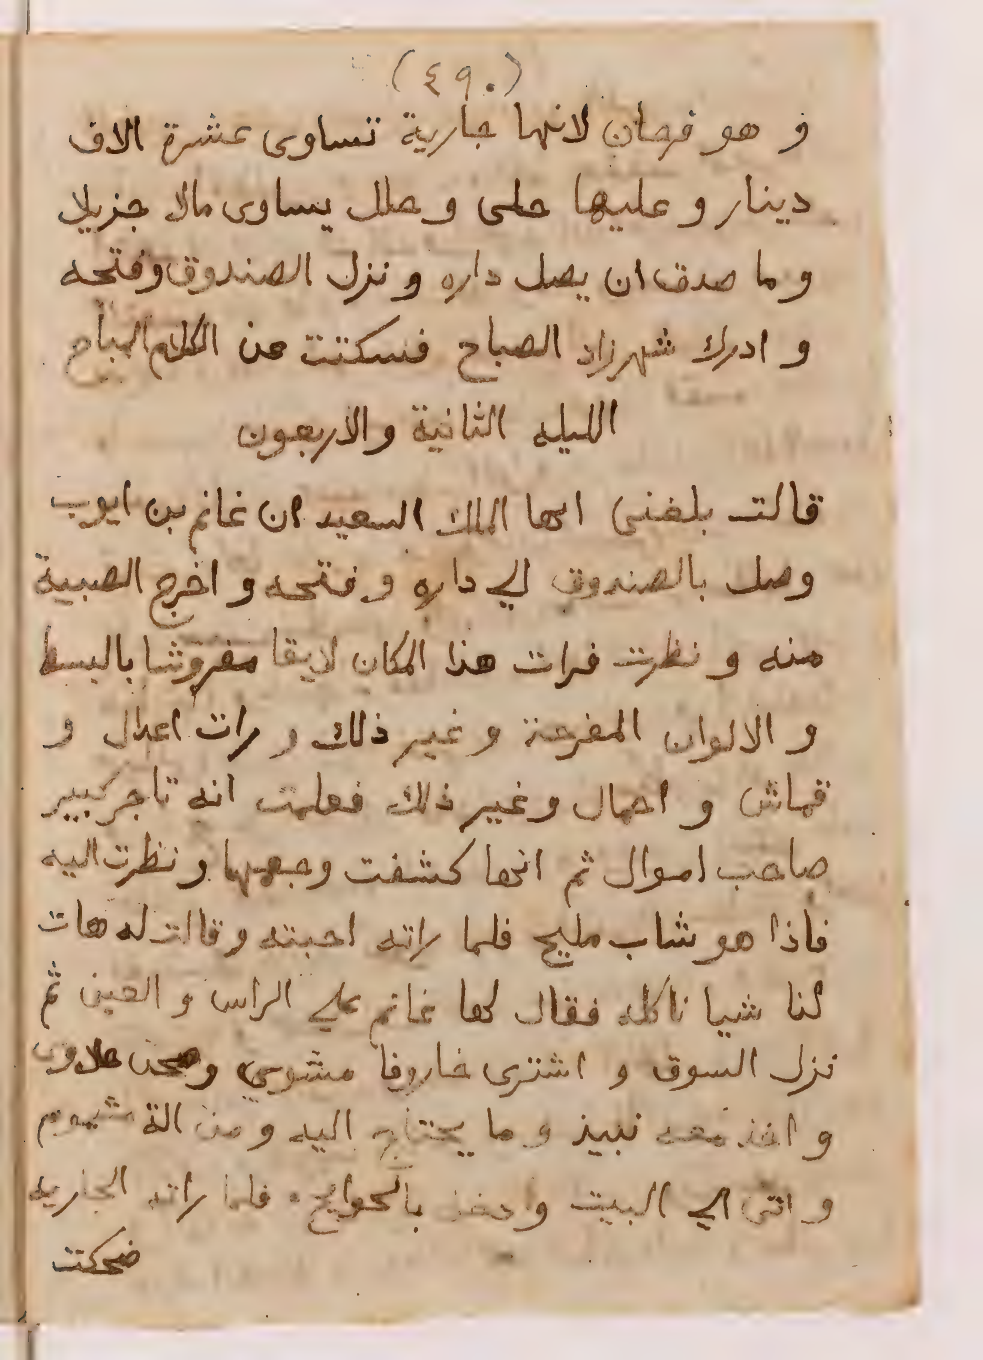 (٤٩٠)
و هو فرحان لانها جارية تساوى عشرة الاف
دينار و عليها حلى و حلل يساوى مالا جزيلا
و ما صدق ان يصل داره و نزل الصندوق وفتحه
و ادرك شهرزاد الصباح فسكتت عن الكلام المباح
الليله الثانية والاربعون
قالت بلغنى ايها الملك السعيد ان غانم بن ايوب
وصل بالصندوق الي داره و فتحه و اخرج الصبية
منه و نظرت فرات هذا المكان لايقا مفروشا بالبسط
و الالوان المفرحة و غير ذلك و رات اعدال و
قماش و احمال وغير ذلك فعلمت انه تاجر كبير
صاحب اموال ثم انها كشفت وجهها و نظرت اليه
فاذا هو شاب مليح فلما راته احبته و قالت له هات
لنا شيا ناكله فقال لها غانم علي الراس و العين ثم
نزل السوق و اشترى خاروفا مشوي وصحن حلاوى
و اخذ معه نبيذ و ما يحتاج اليه و من الة مشموم
و اتى الي البيت و دخل بالحوايج. فلما راته الجاريه
ضحكت